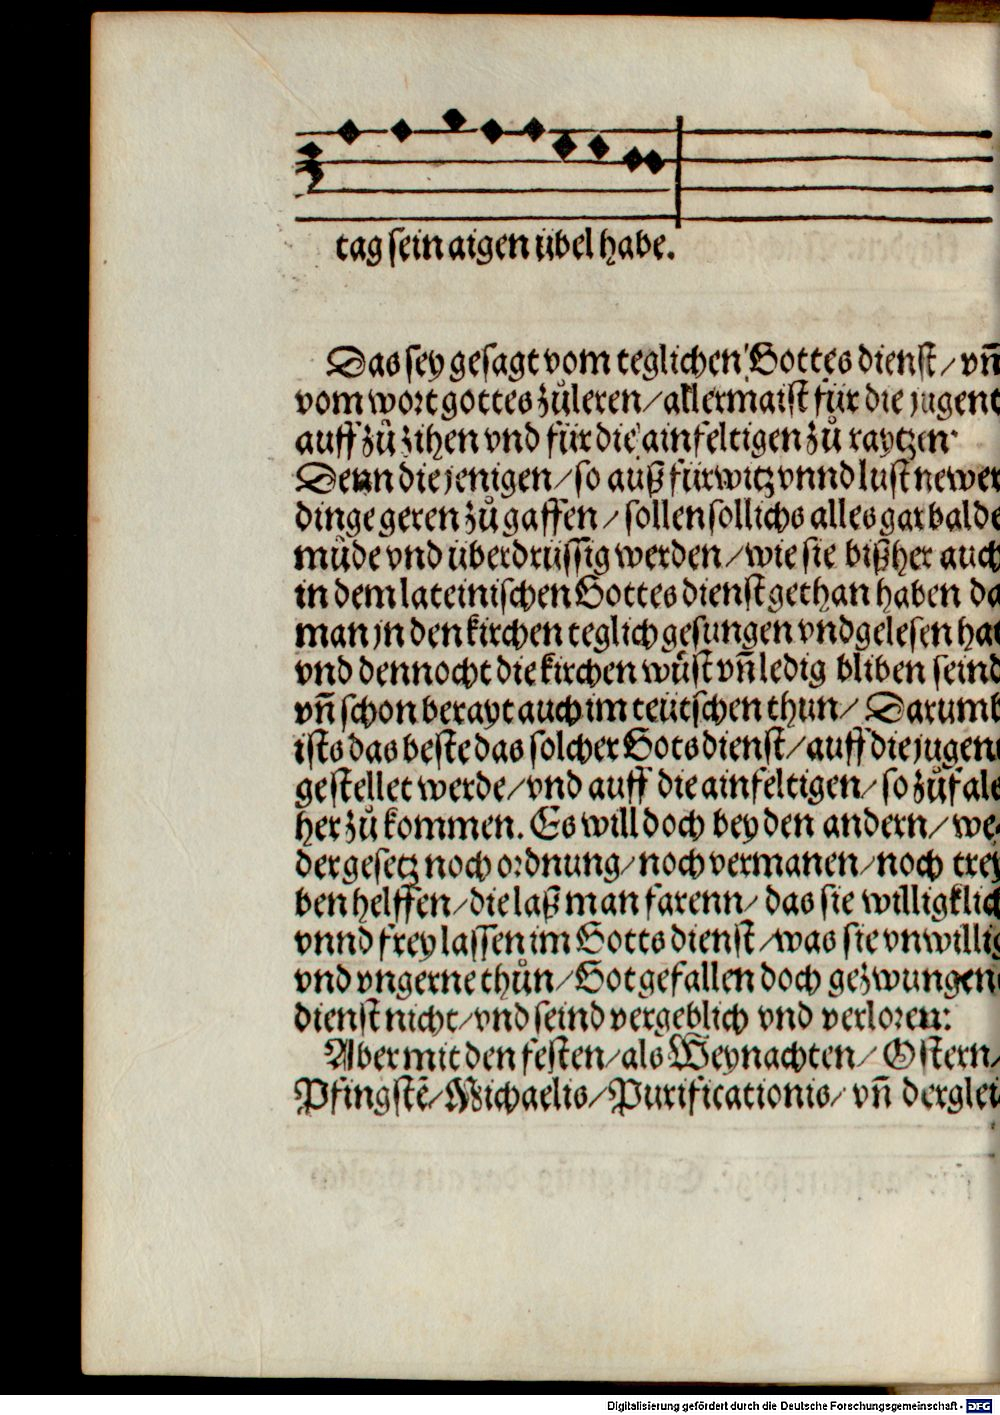 tag sein aigen übel habe.
Das sey gesagt vom teglichen Gottes dienst/ vñ
vom wort gottes zůleren/ allermaist für die jugent
auff zů zihen vnd für die ainfeltigen zů raytzen.
Denn die jenigen/ so auß fürwitz vnnd lust newer
dinge geren zů gaffen/ sollen sollichs alles gar balde
müde vnd überdrüssig werden/ wie sie bißher auch
in dem lateinischen Gottes dienst gethan haben da
man jn den kirchen teglich gesungen vnd gelesen hat
vnd dennocht die kirchen wüst vñ ledig bliben seind
vñ schon berayt auch im teütschen thun/ Darumb
ists das beste das solcher Gots dienst/ auff die jugent
gestellet werde/ vnd auff die ainfeltigen/ so zůfale
her zů kommen. Es will doch bey den andern/ we-
der gesetz noch ordnung/ noch vermanen/ noch trey
ben helffen/ die laß man farenn/ das sie willigklich
vnnd frey lassen im Gotts dienst/ was sie vnwillig
vnd vngerne thůn/ Got gefallen doch gezwungen
dienst nicht/ vnd seind vergeblich vnd verloren:
Aber mit den festen/ als Weynachten/ Ostern/
Pfingstē/ Michaelis/ Purificationis/ vñ derglei
Digitalisierung gefördert durch die Deutsche Forschungsgemeinschaft - DFG